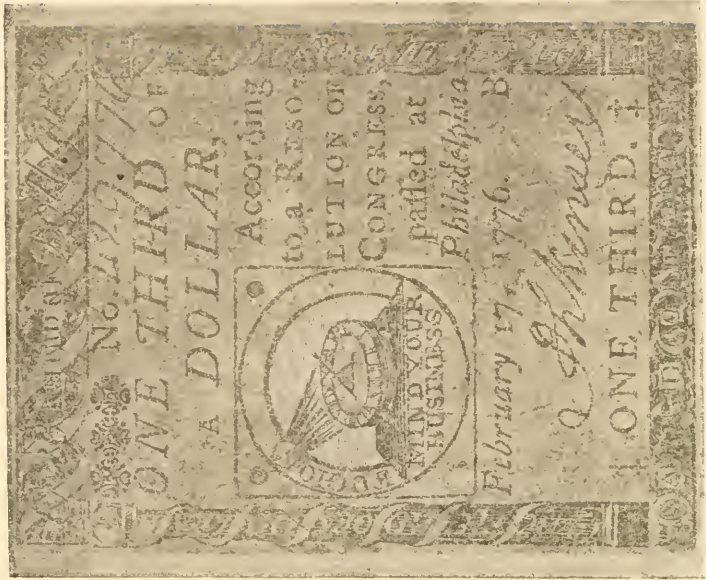 No.
ONE THIRD OF
A DOLLAR,
According
to a RESO-
LUTION OF
CONGRESS,
paſſed at
Philadelphia
February 17, 1776. B
FUGIO
MIND YOUR
BUSINESS
ONE THIRD.